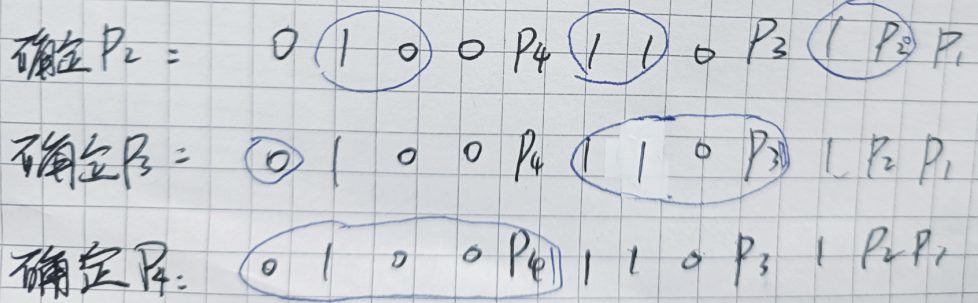 确定P₂: 0 1 0 0 P₄ 1 1 0 P₃ 1 P₂ P₁
确定P₃: 0 1 0 0 P₄ 1 1 0 P₃ 1 P₂ P₁
确定P₄: 0 1 0 0 P₄ 1 1 0 P₃ 1 P₂ P₁